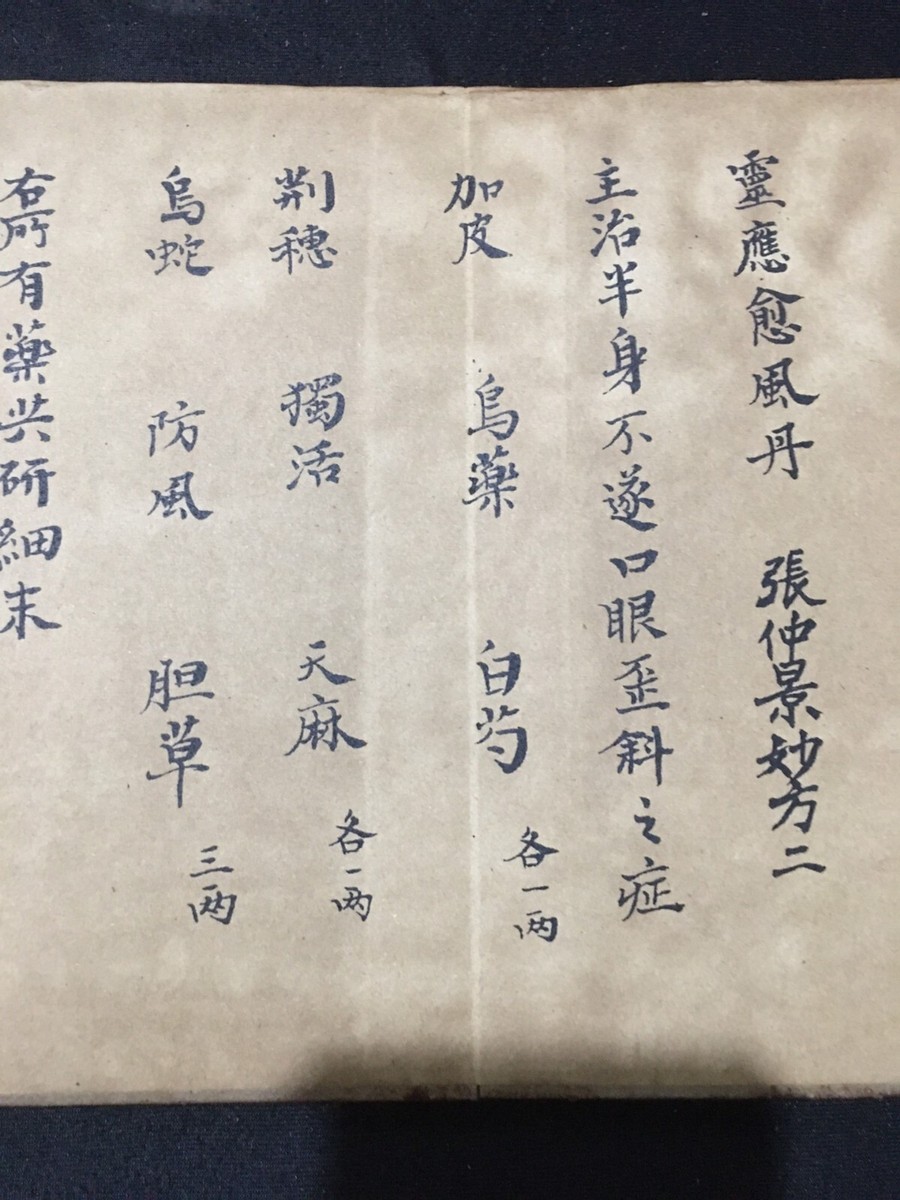 靈應愈風丹 張仲景妙方二
主治半身不遂口眼歪斜之症
加皮 烏藥 白芍 各一两
荆穗 獨活 天麻 各一两
烏蛇 防風 胆草 三两
右所有藥共研細末